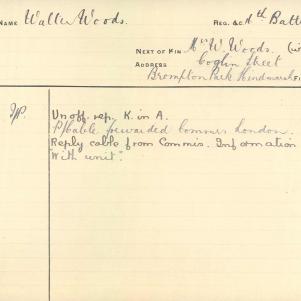 NAME Walter Woods. REG. &C. 4th Batt
NEXT OF KIN Mrs W. Woods.
ADDRESS Coglin Street
Brompton Park Hindmarsh
Unoff. rep. K. in A.
P/Cable forwarded Commrs London.
Reply cable from Commis. Information
"With unit".